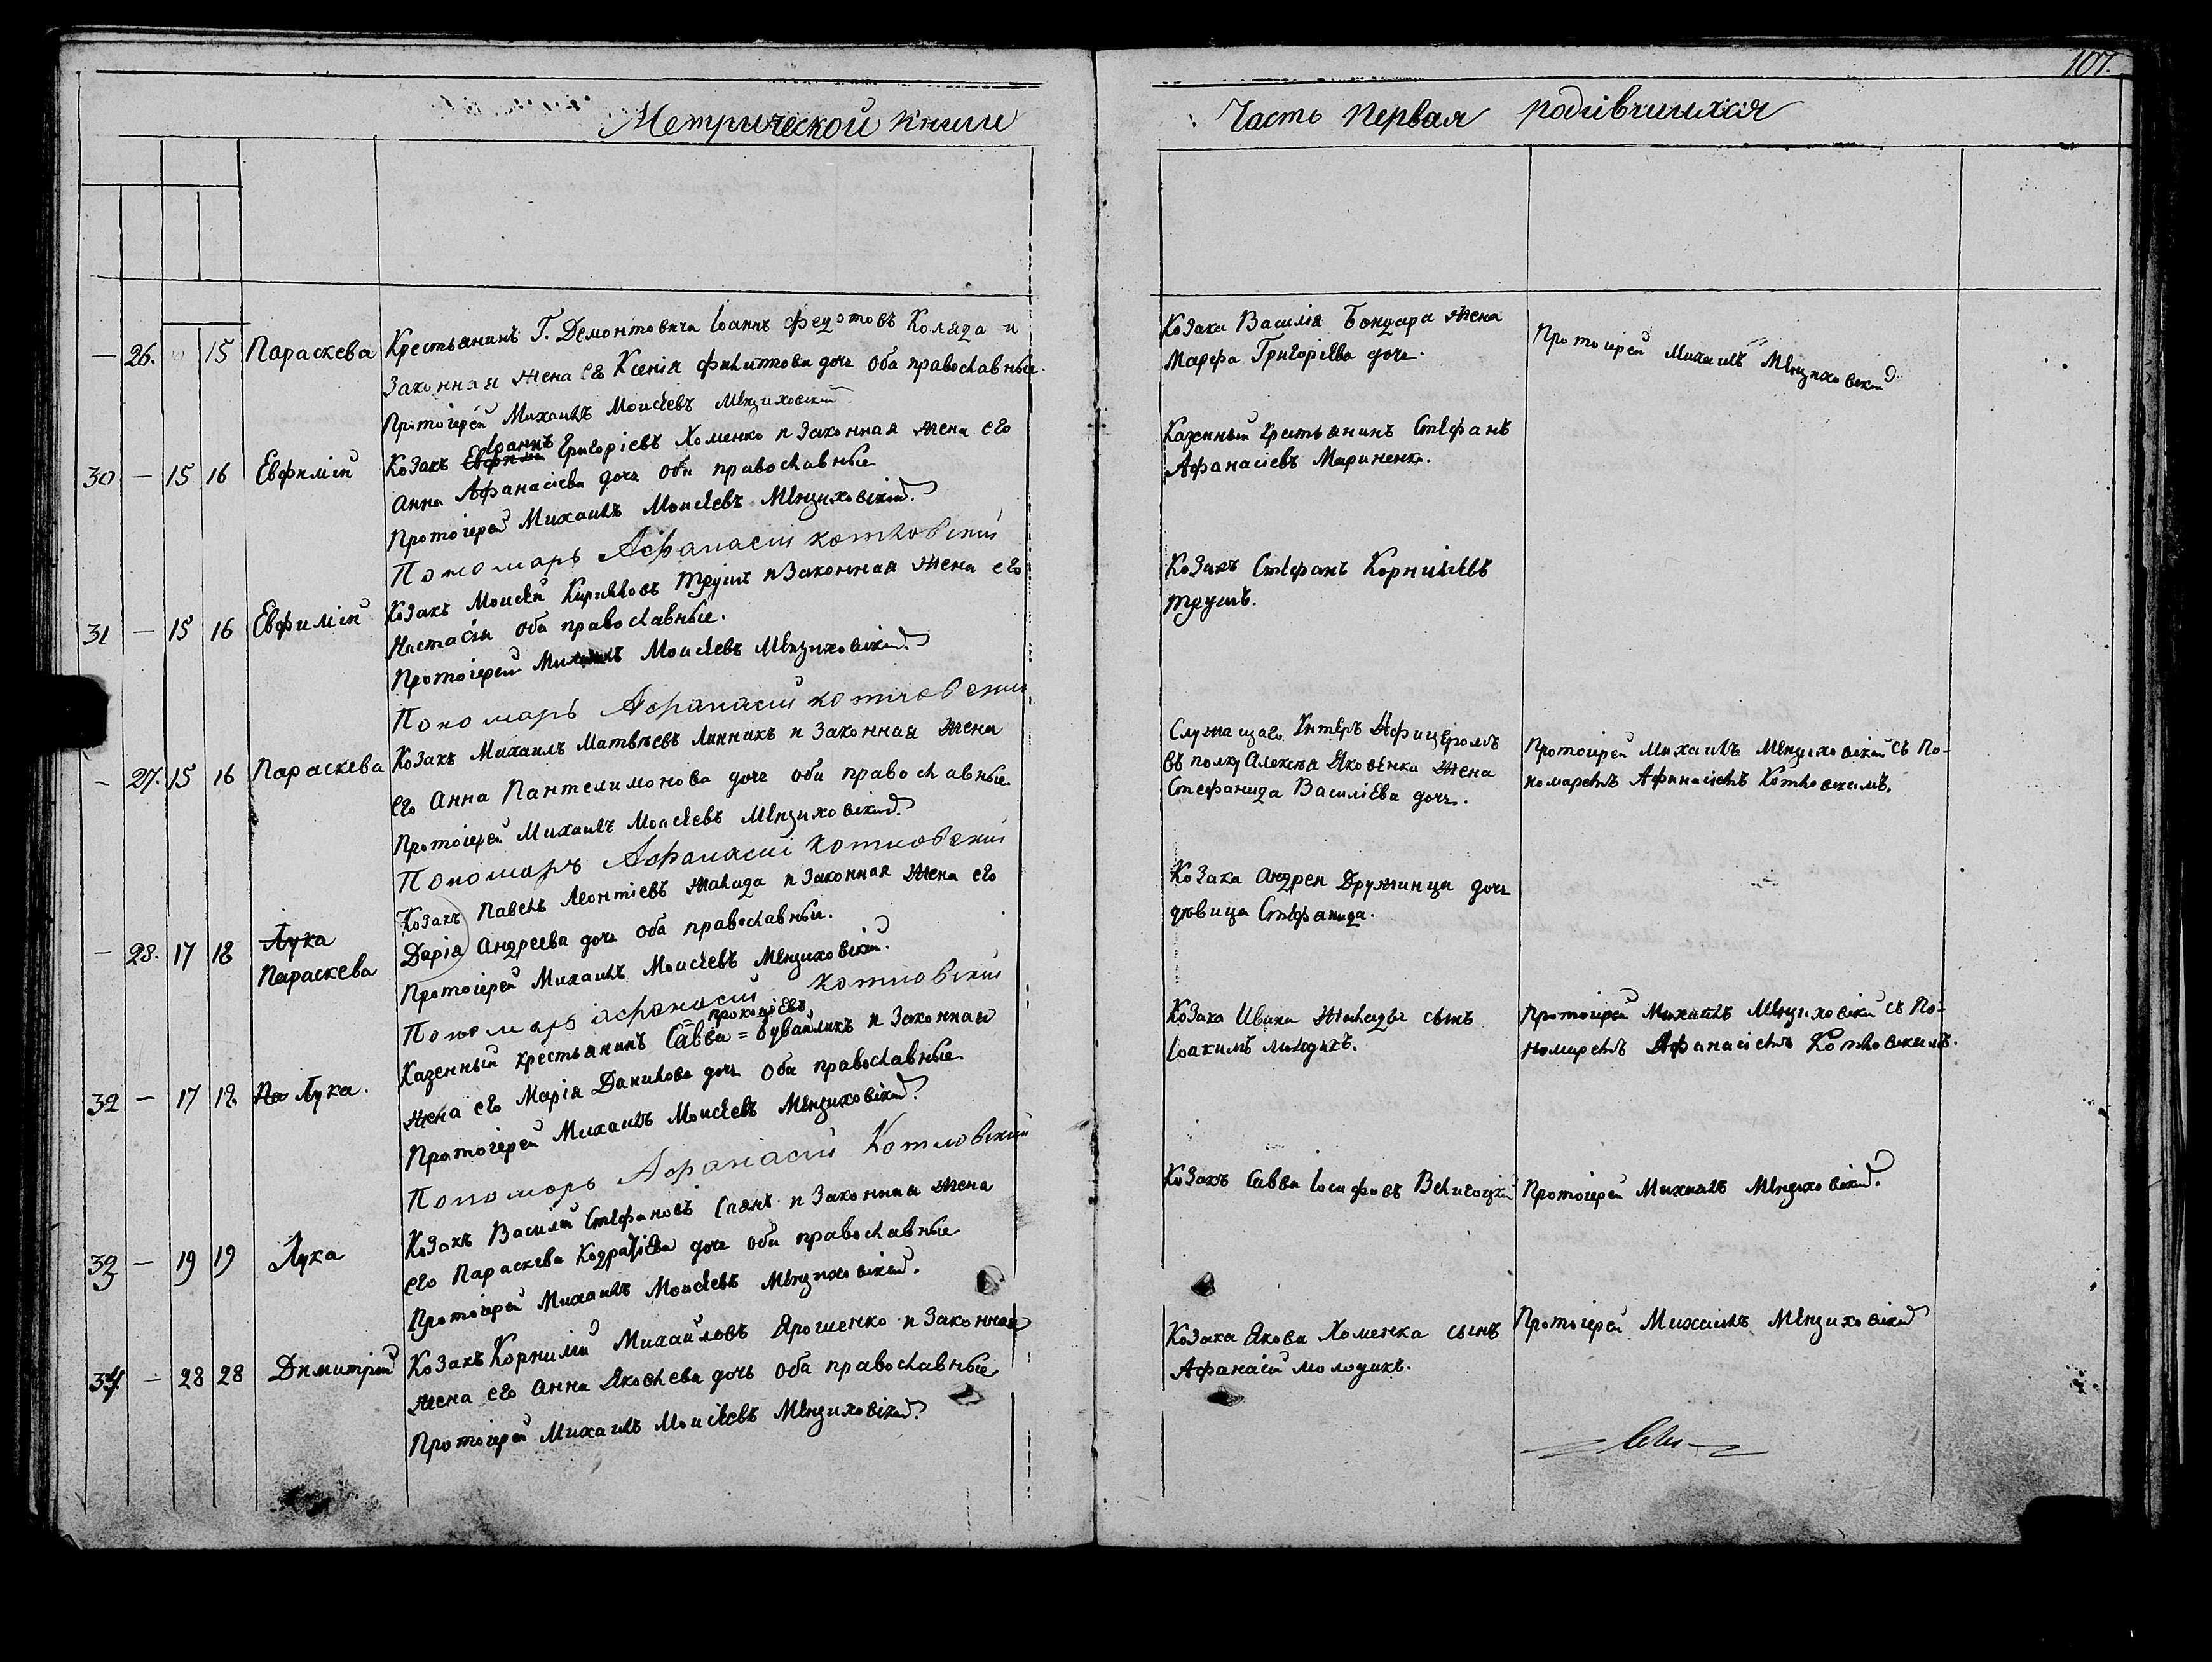 107.
Метрической книги
Часть первая родившихся
— 26. 15 Параскева
Крестьянинъ Г. Демонтовича Іоаннъ Федотовъ Коляда и
Законная жена его Ксенія Филиппова дочь оба православные.
Протоіерей Михаилъ Моисеевъ
Козака Василія Бондара жена
Марфа Григоріева дочь.
Протоіерей Михаилъ
30 — 15 16 Евфимій
Козакъ Евфимій Іоаннъ Григоріевъ Хоменко и Законная жена его
Анна Афанасіева дочь оба православные
Протоіерей Михаилъ Моисеевъ
Пономарь Афанасій Котловскій
Казенный крестьянинъ Стефанъ
Афанасіевъ Мариненко.
31 — 15 16 Евфимій
Козакъ Моисей Кирилловъ Трушъ и Законная жена его
Настасія оба православные.
Протоіерей Михаилъ Моисеевъ
Пономарь Афанасій Котловскій
Козакъ Стефанъ Корниліевъ
Трушъ.
— 27. 15 16 Параскева
Козакъ Михаилъ Матвѣевъ Линникъ и Законная жена
его Анна Пантелимонова дочь оба православные
Протоіерей Михаилъ Моисеевъ
Пономарь Афанасій Котловскій
Служащаго Унтеръ Афицеромъ
въ полку Алексѣя Яковенка жена
Стефанида Василіева дочь.
Протоіерей Михаилъ съ По-
номаремъ Афанасіемъ Котловскимъ.
— 28. 17 18 Лука
Параскева
Козакъ Павелъ Леонтіевъ Жалада и Законная жена его
Дарія Андреева дочь оба православные.
Протоіерей Михаилъ Моисеевъ
Пономарь Афанасій Котловскій
Козака Андрея Дружинца дочь
дѣвица Стефанида.
32 — 17 18 Па Лука.
Казенный крестьянинъ Савва = Прокопіевъ Бувайликъ и Законная
жена его Марія Данилова дочь оба православные
Протоіерей Михаилъ Моисеевъ
Пономарь Афанасій Котловскій
Козака Ивана Жалады сынъ
Іоакимъ молодикъ.
Протоіерей Михаилъ съ По-
номаремъ Афанасіемъ Котловскимъ.
33 — 19 19 Лука
Козакъ Василій Стефановъ и Законная жена
его Параскева Кодратіева дочь оба православные
Протоіерей Михаилъ Моисеевъ
Козакъ Савва Іосифовъ Велигоцкій
Протоіерей Михаилъ
34 — 28 28 Димитрій
Козакъ Корнилій Михайловъ Ярошенко и Законная
жена его Анна Яковлева дочь оба православные
Протоіерей Михаилъ Моисеевъ
Козака Якова Хоменка сынъ
Афанасій молодикъ.
Протоіерей Михаилъ